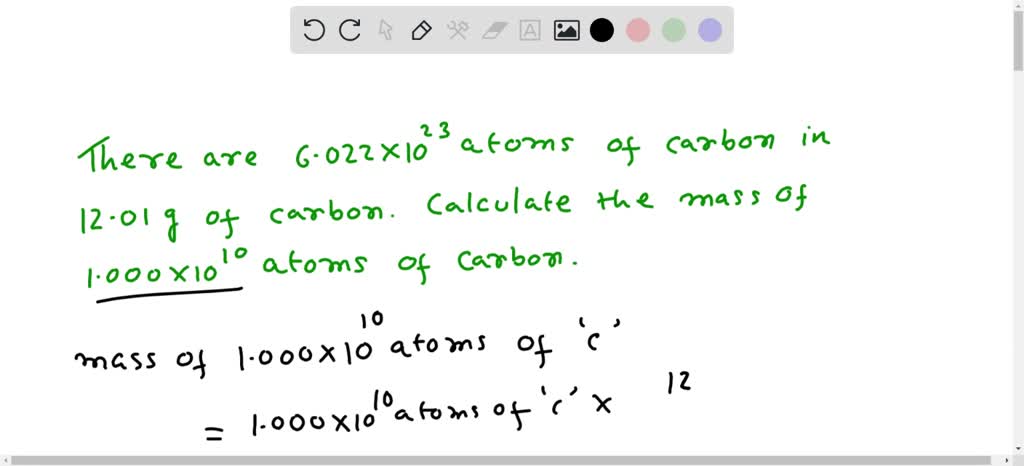 There are 6.022×10²³ atoms of carbon in
12.01 g of carbon. Calculate the mass of
1.000×10¹⁰ atoms of carbon.
mass of 1.000×10¹⁰ atoms of 'c'
= 1.000×10¹⁰ atoms of 'c' × 12